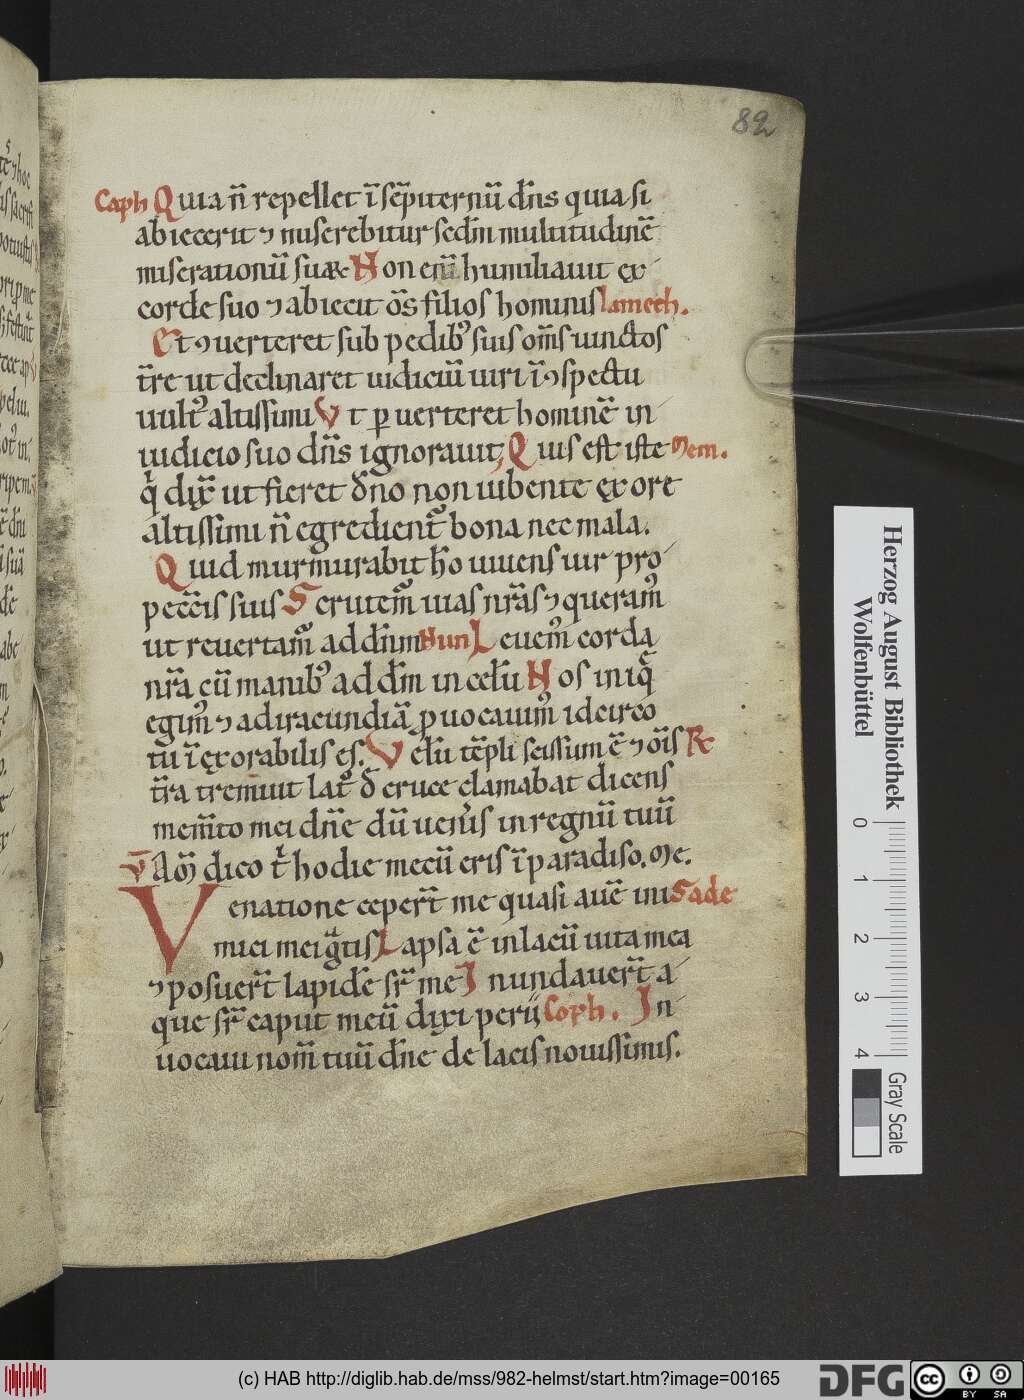 82
Caph Quia n̄ repellet ī sēpiternū dn̄s quia si
abiecerit ⁊ miserebitur scdm̄ multitudinē
miserationū suaꝝ Non enī humiliauit ex
corde suo ⁊ abiecit om̄s filios hominis lamech.
Et ꝯuerteret sub pedibꝰ suis om̄s uinctos
tr̄e ut declinaret iudiciū uiri ī ꝯspectu
uultꝰ altissimi Ut ꝑuerteret hominē in
iudicio suo dn̄s ignorauit, Quis est iste Mem.
q̇ dix̄ ut fieret dn̄o non iubente ex ore
altissimi n̄ egredient᷑ bona nec mala.
Quid murmurabit hō uiuens uir pro
peccīs suis Scrutem᷑ uias nr̄as ⁊ queramꝰ
ut reuertam᷑ ad dn̄m Nun Leuemꝰ corda
nr̄a cū manibꝰ ad dn̄m in celū Nos iniq̄
egimꝰ ⁊ ad iracundiā ꝓuocauimꝰ idcirco
tu īexorabilis es. Velū tēpli scissum ē ⁊ om̄īs R
tr̄a tremuit lat᷑ de cruce clamabat dicens
mem̄to mei dn̄e dū uen̄is in regnū tuū
V̄ Am̄ dico t̄ hodie mecū eris ī paradiso. Me.
Venatione ceper̄t me quasi auē ini Sade
mici mei gͣtis Lapsa ē in lacū uita mea
⁊ posuer̄t lapidē sr̄ me Inundauer̄t a
que sr̄ caput meū dixi perii Coph. In
uocaui nom̄ tuū dn̄e de lacis nouissimis.
Herzog August Bibliothek
Wolfenbüttel
0
1
2
3
4
Gray Scale
(c) HAB http://diglib.hab.de/mss/982-helmst/start.htm?image=00165
DFG
cc
BY SA